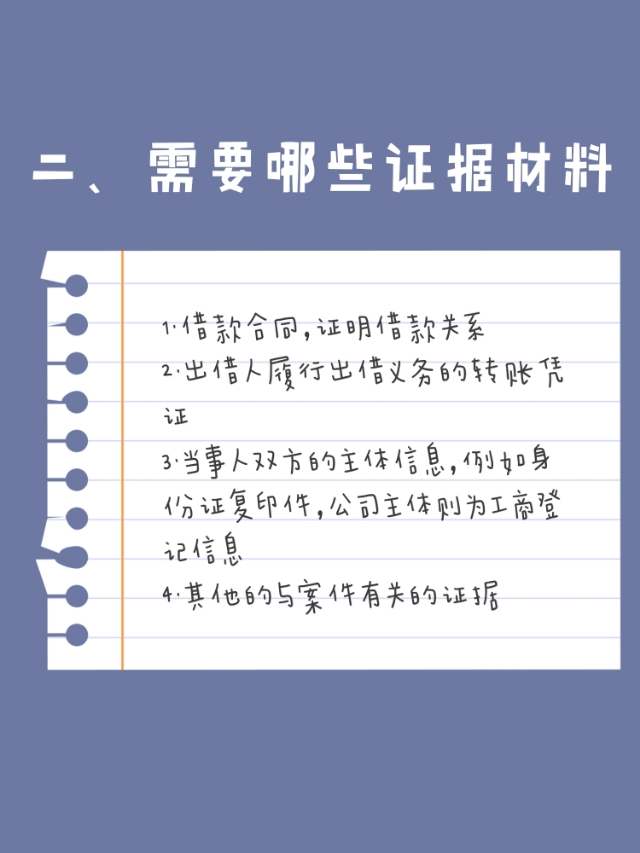 二、需要哪些证据材料
1.借款合同,证明借款关系
2.出借人履行出借义务的转账凭
证
3.当事人双方的主体信息,例如身
份证复印件,公司主体则为工商登
记信息
4.其他的与案件有关的证据